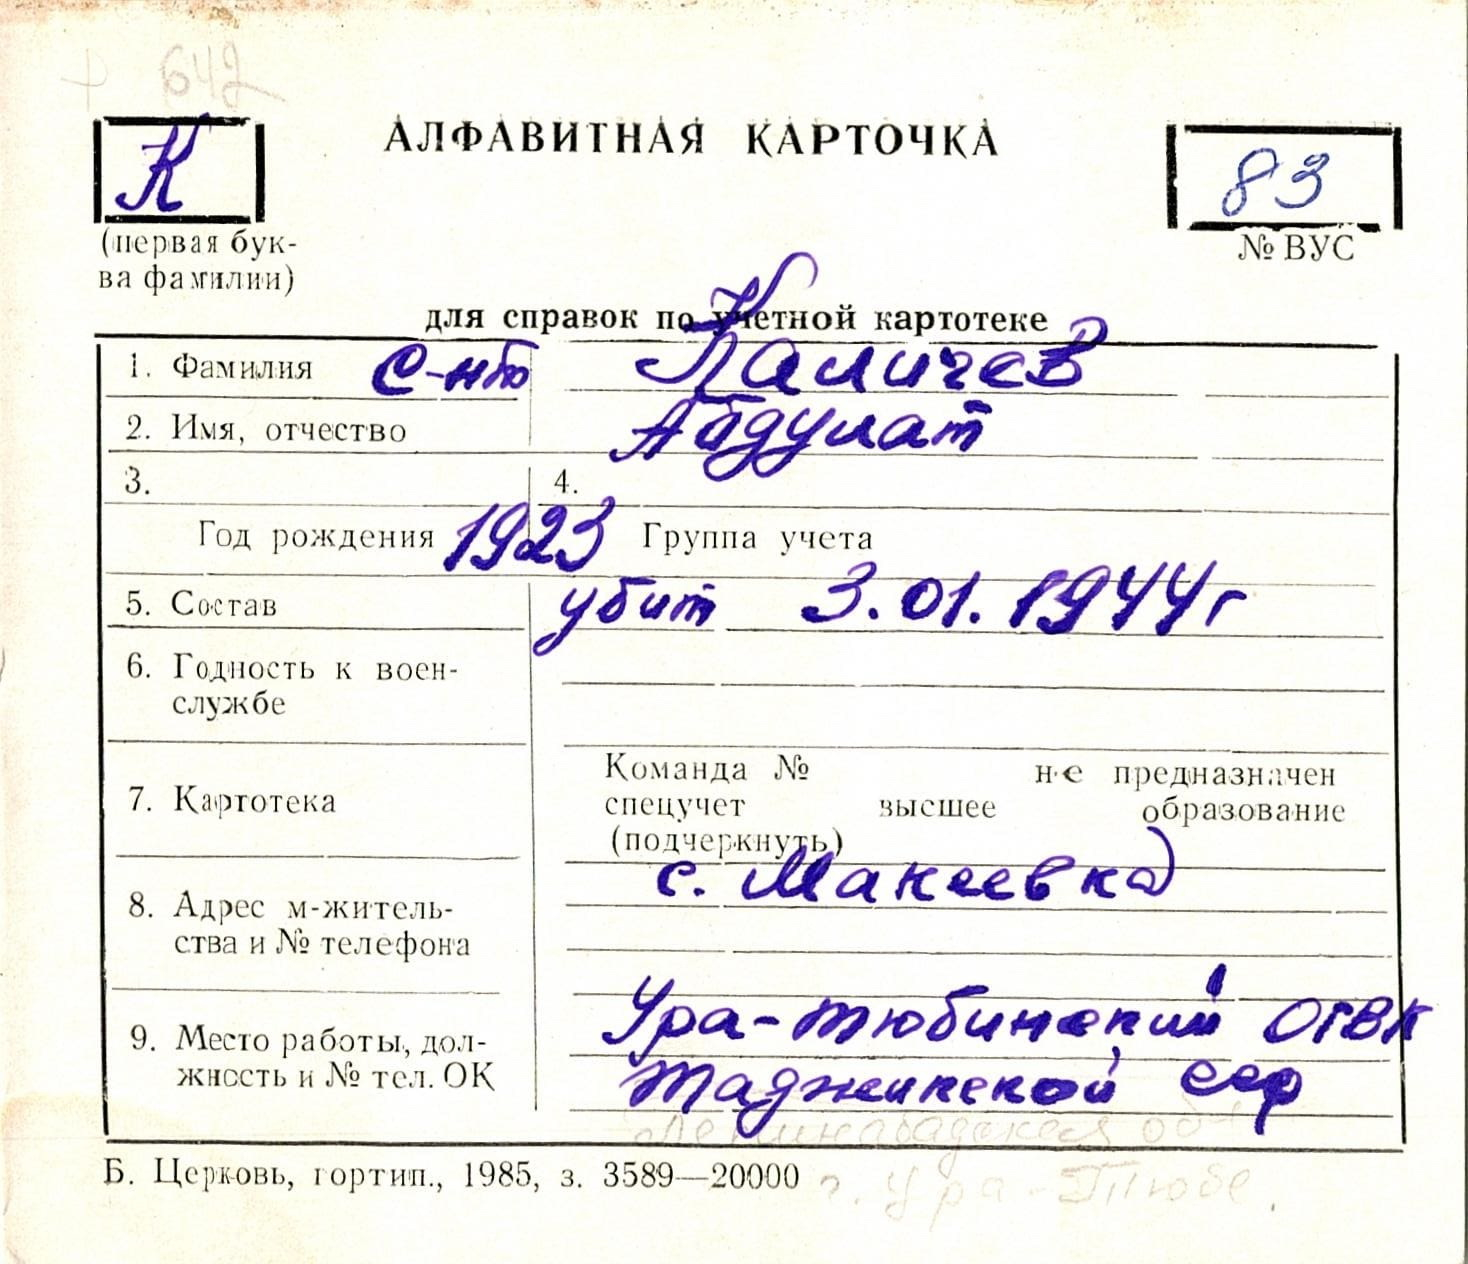 642
К
АЛФАВИТНАЯ КАРТОЧКА
83
(первая бук-
ва фамилии)
№ ВУС
для справок по учетной картотеке
1. Фамилия с-нт Каличев
2. Имя, отчество Абдулат
3. 4.
Год рождения 1923 Группа учета
5. Состав убит 3.01.1944 г
6. Годность к воен-
службе
Команда № не предназначен
7. Картотека спецучет высшее образование
(подчеркнуть)
с. Макеевка
8. Адрес м-житель-
ства и № телефона
Ура-тюбинский ОГВК
9. Место работы, дол-
жность и № тел. ОК
Таджикской ССР
Ленинабадская обл
Б. Церковь, гортип., 1985, з. 3589—20000
г. Ура-Тюбе.